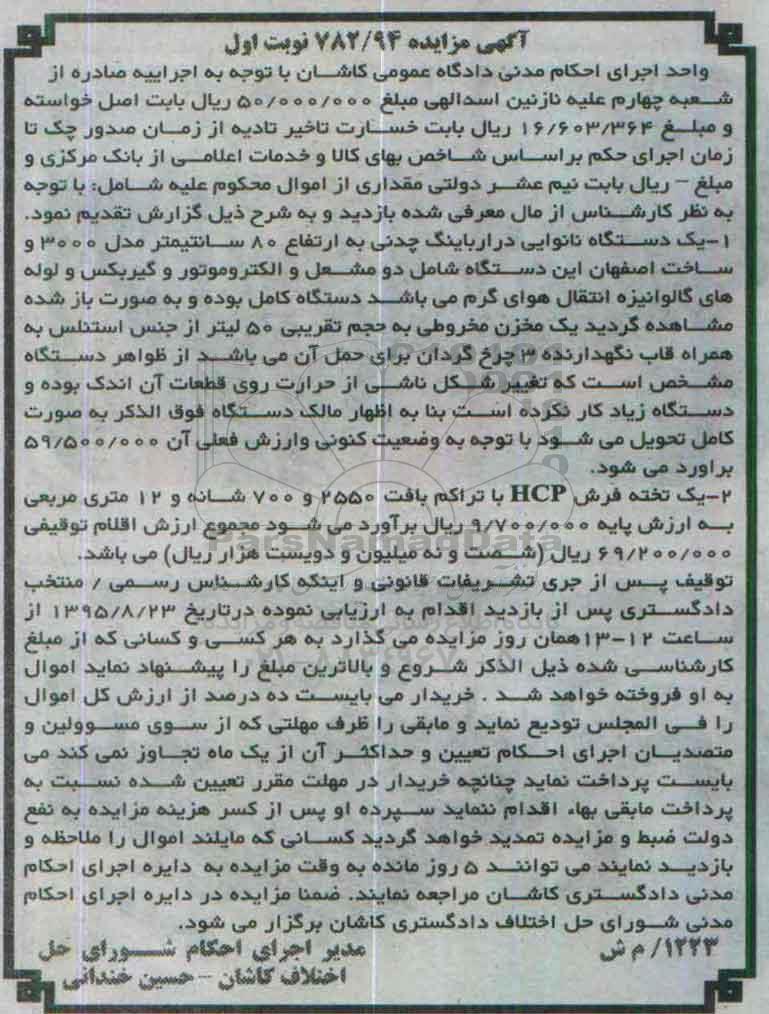 آگهی مزایده ۷۸۲/۹۴ نوبت اول
واحد اجرای احکام مدنی دادگاه عمومی کاشان با توجه به اجراییه صادره از
شعبه چهارم علیه نازنین اسدالهی مبلغ ۵۰/۰۰۰/۰۰۰ ریال بابت اصل خواسته
و مبلغ ۱۶/۶۰۳/۳۶۴ ریال بابت خسارت تاخیر تادیه از زمان صدور چک تا
زمان اجرای حکم براساس شاخص بهای کالا و خدمات اعلامی از بانک مرکزی و
مبلغ – ریال بابت نیم عشر دولتی مقداری از اموال محکوم علیه شامل: با توجه
به نظر کارشناس از مال معرفی شده بازدید و به شرح ذیل گزارش تقدیم نمود.
۱-یک دستگاه نانوایی درارباینگ چدنی به ارتفاع ۸۰ سانتیمتر مدل ۳۰۰۰ و
ساخت اصفهان این دستگاه شامل دو مشعل و الکتروموتور و گیربکس و لوله
های گالوانیزه انتقال هوای گرم می باشد دستگاه کامل بوده و به صورت باز شده
مشاهده گردید یک مخزن مخروطی به حجم تقریبی ۵۰ لیتر از جنس استنلس به
همراه قاب نگهدارنده ۳ چرخ گردان برای حمل آن می باشد از ظواهر دستگاه
مشخص است که تغییر شکل ناشی از حرارت روی قطعات آن اندک بوده و
دستگاه زیاد کار نکرده است بنا به اظهار مالک دستگاه فوق الذکر به صورت
کامل تحویل می شود با توجه به وضعیت کنونی وارزش فعلی آن ۵۹/۵۰۰/۰۰۰
براورد می شود.
۲-یک تخته فرش HCP با تراکم بافت ۲۵۵۰ و ۷۰۰ شانه و ۱۲ متری مربعی
به ارزش پایه ۹/۷۰۰/۰۰۰ ریال برآورد می شود مجموع ارزش اقلام توقیفی
۶۹/۲۰۰/۰۰۰ ریال (شصت و نه میلیون و دویست هزار ریال) می باشد.
توقیف پس از جری تشریفات قانونی و اینکه کارشناس رسمی / منتخب
دادگستری پس از بازدید اقدام به ارزیابی نموده درتاریخ ۱۳۹۵/۸/۲۳ از
ساعت ۱۲-۱۳همان روز مزایده می گذارد به هر کسی و کسانی که از مبلغ
کارشناسی شده ذیل الذکر شروع و بالاترین مبلغ را پیشنهاد نماید اموال
به او فروخته خواهد شد . خریدار می بایست ده درصد از ارزش کل اموال
را فی المجلس تودیع نماید و مابقی را ظرف مهلتی که از سوی مسوولین و
متصدیان اجرای احکام تعیین و حداکثر آن از یک ماه تجاوز نمی کند می
بایست پرداخت نماید چنانچه خریدار در مهلت مقرر تعیین شده نسبت به
پرداخت مابقی بهاء اقدام ننماید سپرده او پس از کسر هزینه مزایده به نفع
دولت ضبط و مزایده تمدید خواهد گردید کسانی که مایلند اموال را ملاحظه و
بازدید نمایند می توانند ۵ روز مانده به وقت مزایده به دایره اجرای احکام
مدنی دادگستری کاشان مراجعه نمایند. ضمنا مزایده در دایره اجرای احکام
مدنی شورای حل اختلاف دادگستری کاشان برگزار می شود.
۱۲۲۳/ م ش
مدیر اجرای احکام شورای حل
اختلاف کاشان – حسین خندانی
ParsNamadData